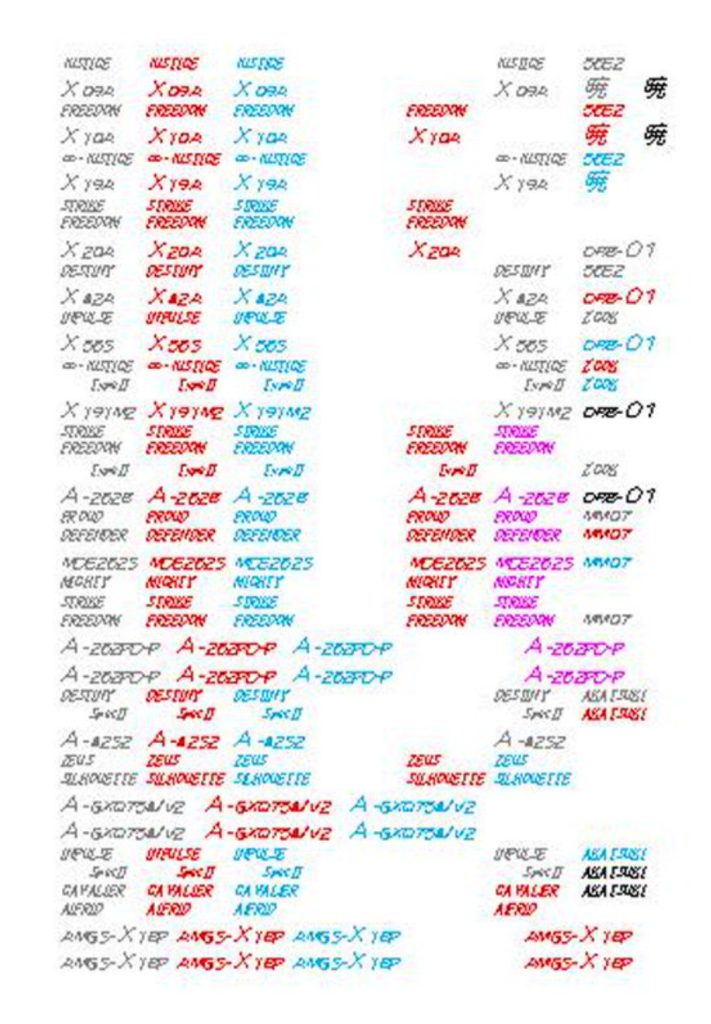 JUSTICE JUSTICE JUSTICE JUSTICE
X 09A X 09A X 09A X 09A
FREEDOM FREEDOM FREEDOM FREEDOM
X 10A X 10A X 10A X 10A
∞-JUSTICE ∞-JUSTICE ∞-JUSTICE ∞-JUSTICE
X 19A X 19A X 19A X 19A
STRIKE STRIKE STRIKE STRIKE
FREEDOM FREEDOM FREEDOM FREEDOM
X 20A X 20A X 20A X 20A ORB-01
DESTINY DESTINY DESTINY DESTINY
X 42A X 42A X 42A X 42A ORB-01
IMPULSE IMPULSE IMPULSE IMPULSE
X 56S X 56S X 56S X 56S ORB-01
∞-JUSTICE ∞-JUSTICE ∞-JUSTICE ∞-JUSTICE
Type II Type II Type II Type II
X 191M2 X 191M2 X 191M2 X 191M2 ORB-01
STRIKE STRIKE STRIKE STRIKE STRIKE
FREEDOM FREEDOM FREEDOM FREEDOM FREEDOM
Type II Type II Type II Type II
A-262B A-262B A-262B A-262B A-262B ORB-01
PROUD PROUD PROUD PROUD PROUD MM07
DEFENDER DEFENDER DEFENDER DEFENDER DEFENDER MM07
MDE262S MDE262S MDE262S MDE262S MDE262S MM07
MIGHTY MIGHTY MIGHTY MIGHTY MIGHTY
STRIKE STRIKE STRIKE STRIKE STRIKE
FREEDOM FREEDOM FREEDOM FREEDOM FREEDOM MM07
A-262PD-P A-262PD-P A-262PD-P A-262PD-P
A-262PD-P A-262PD-P A-262PD-P A-262PD-P
DESTINY DESTINY DESTINY DESTINY AKATSUKI
Spec II Spec II Spec II Spec II AKATSUKI
A-42S2 A-42S2 A-42S2 A-42S2
ZEUS ZEUS ZEUS ZEUS ZEUS
SILHOUETTE SILHOUETTE SILHOUETTE SILHOUETTE SILHOUETTE
A-GXQ754/V2 A-GXQ754/V2 A-GXQ754/V2
A-GXQ754/V2 A-GXQ754/V2 A-GXQ754/V2
IMPULSE IMPULSE IMPULSE IMPULSE AKATSUKI
Spec II Spec II Spec II Spec II AKATSUKI
CAVALIER CAVALIER CAVALIER CAVALIER AKATSUKI
AIFRID AIFRID AIFRID AIFRID
AMGS-X 1EP AMGS-X 1EP AMGS-X 1EP AMGS-X 1EP
AMGS-X 1EP AMGS-X 1EP AMGS-X 1EP AMGS-X 1EP